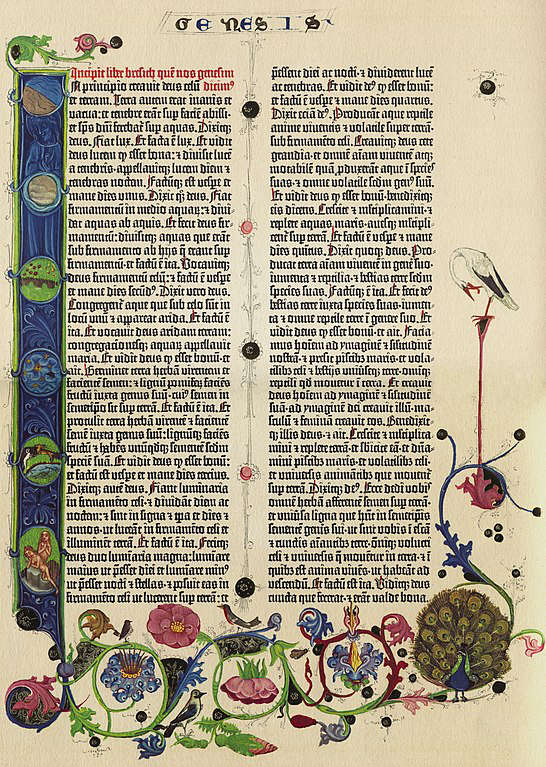 GENESIS
Incipit liber bresith quē nos genesim
In principio creavit deus celū dicim⁹
et terram. Terra autem erat inanis et
vacua: et tenebre erāt sup faciē abissi:
et sp̄s dn̄i ferebatur sup aquas. Dixitq̄
deus. Fiat lux. Et facta ē lux. Et vidit
deus lucem ꝙ esset bona: et divisit lucē
a tenebris-appellavitq̄ lucem diem et
tenebras noctem. Factūq̄ est vespe et
mane dies unus. Dixit q̄ deus. Fiat
firmamentū in medio aquar̄: et divi-
dat aquas ab aquis. Et fecit deus fir-
mamentū: divisitq̄ aquas que erāt
sub firmamento ab hijs q̄ erant sup
firmamentū: et factū ē ita. Vocavitq̄
deus firmamentū celū: et factū ē vespe
et mane dies secūd⁹. Dixit vero deus.
Congregent̄ aque que sub celo sūt in
locū unū et appareat arida. Et factū ē
ita. Et vocavit deus aridam terram:
congregacōnesq̄ aquar̄ appellavit
maria. Et vidit deus ꝙ esset bonū-et
ait. Germinet terra herbā virentem et
facientē semen: et lignū pomiferū faciēs
fructū iuxta genus suū-cui⁹ semen in
semetipso sit sup terrā. Et factū ē ita. Et
protulit terra herbā virentē et facientē
semē iuxta genus suū: lignūq̄ faciēs
fructū et habēs unūqdq̄ sementē scdm̄
speciē suā. Et vidit deus ꝙ esset bonū:
et factū est vespe et mane dies tercius.
Dixitq̄ autē deus. Fiant luminaria
in firmamēto celi-et dividāt diem ac
noctem: et sint in signa et tp̄a et dies et
annos: ut luceāt in firmamēto celi et
illuminēt terrā. Et factū ē ita. Fecitq̄
deus duo luminaria magna: lumīare
maius ut pesset diei et lumīare min⁹
ut pesset nocti et stellas-et posuit eas in
firmamēto celi ut lucerent sup terrā: et
pessent diei ac nocti-et dividerēt lucē
ac tenebras. Et vidit de⁹ ꝙ esset bonū:
et factū ē vespe et mane dies quartus.
Dixit eciā de⁹. Producāt aque reptile
anime viventis et volatile sup terrā-
sub firmamēto celi. Creavitq̄ deus cete
grandia-et omnē aīam viventē atq̄
motabilē quā pduxerāt aque ī species
suas-et omne volatile scdm̄ gen⁹ suū.
Et vidit deus ꝙ esset bonū-benedixitq̄
eis dicens. Crescite et multiplicamini-et
replete aquas maris-avesq̄ multipli-
cent̄ sup terrā. Et factū ē vespe et mane
dies quitus. Dixit quoq̄ deus. Pro-
ducat terra aīam viventē in genē suo-
iumenta et reptilia-et bestias terre scdm̄
species suas. Factūq̄ ē ita. Et fecit de⁹
bestias terre iuxta species suas-iumen-
ta et omne reptile terre ī genere suo. Et
vidit deus ꝙ esset bonū-et ait. Facia-
mus hoīem ad ymaginē et similitudinē
nostrā-et presit piscib⁹ maris-et vola-
tilib⁹ celi et bestijs universeq̄ terre-omniq̄
reptili qd̄ movetur ī terra. Et creavit
deus hoīem ad ymaginē et similitudinē
suā-ad ymaginem dei creavit illū-mas-
culū et feminā creavit eos. Benedixitq̄
illis deus-et ait. Crescite et multiplica-
mini et replete terrā-et subicite eā-et dn̄a-
mini piscib⁹ maris-et volatilib⁹ celi-
et universis animātib⁹ que moventur
sup terrā. Dixitq̄ de⁹. Ecce dedi vobis
omnē herbā afferentē semen sup terrā-
et universa ligna que hn̄t in semetipsis
sementē generis sui-ut sint vobis ī escā-
et cūctis aīantib⁹ terre-omniq̄ volucri
celi et universis q̄ moventur in terra-et ī
quib⁹ est anima vivēs-ut habeāt ad
vescendū. Et factū est ita. Viditq̄ deus
cuncta que fecerat-et erāt valde bona.